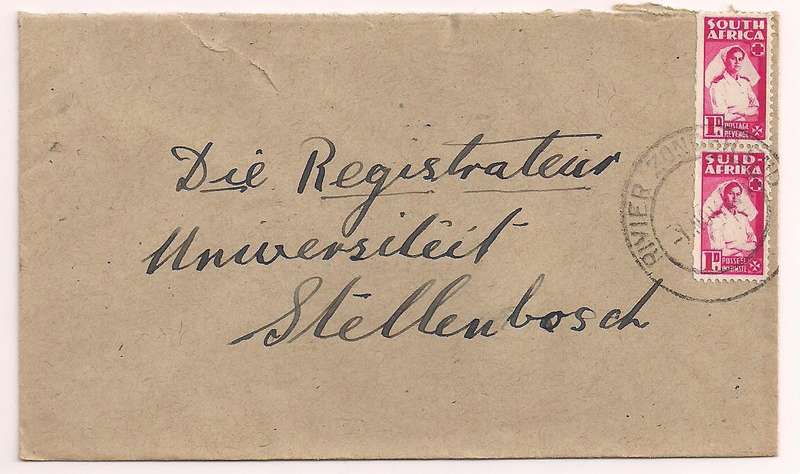 Die Registrateur
Universiteit
Stellenbosch
SOUTH
AFRICA
1D.
POSTAGE
REVENUE
SUID-
AFRIKA
1D.
POSSEEL
INKOMSTE
RIVIER